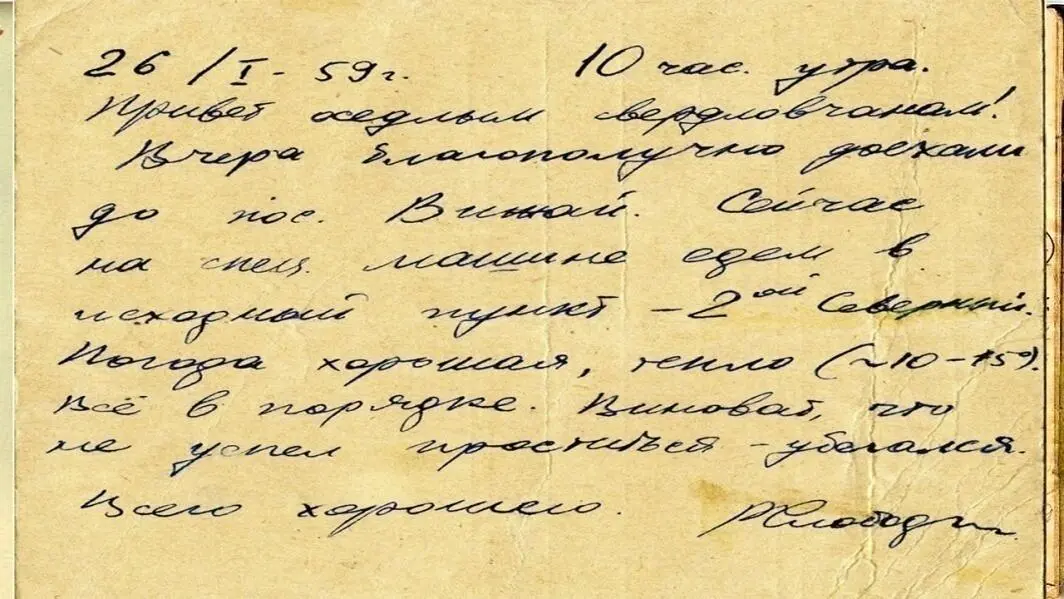 26/I-59г. 10 час. утра.
Привет оседлым свердловчанам!
Вчера благополучно доехали
до пос. Вижай. Сейчас
на спец. машине едем в
исходный пункт - 2ой Северный.
Погода хорошая, тепло (~10-15°).
Всё в порядке. Виноват, что
не успел проститься - убегался.
Всего хорошего. РСлободин